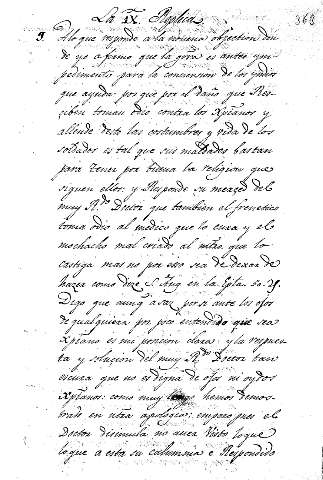 La IX. Replica
363
9. A lo que responde a la novena objection don
de yo afirmo que la grra es antes ym-
pedimento para la conversion de los yndios
que ayuda: por que por el daño que Res-
ciben toman odio contra los Xpīanos y
allende desto las costumbres y vida de los
soldados es tal que sus maldades bastan
para tener por buena la religion que
siguen ellos: y Responde su merçed del
muy Rdo Doctor que tambien el frenetico
toma odio al medico que lo cura y el
mochacho mal criado al mtro que lo
castiga mas no por esso sea de dexar de
hazer como dize S. Aug. en la Epla. 50.
Digo que aunq asaz por si ante los ojos
de qualquiera por poco entendido que sea
Xpīano es mi posicion clara: y la repues-
ta y solucion del muy Rdo Doctor tan
escura que no es digna de ojos ni oydos
Xpīanos: como muy largo hemos demos-
trado en nra apologia: empero por el
Doctor disimula no aver Visto lo que
lo que a esta su calumnia e Respondido